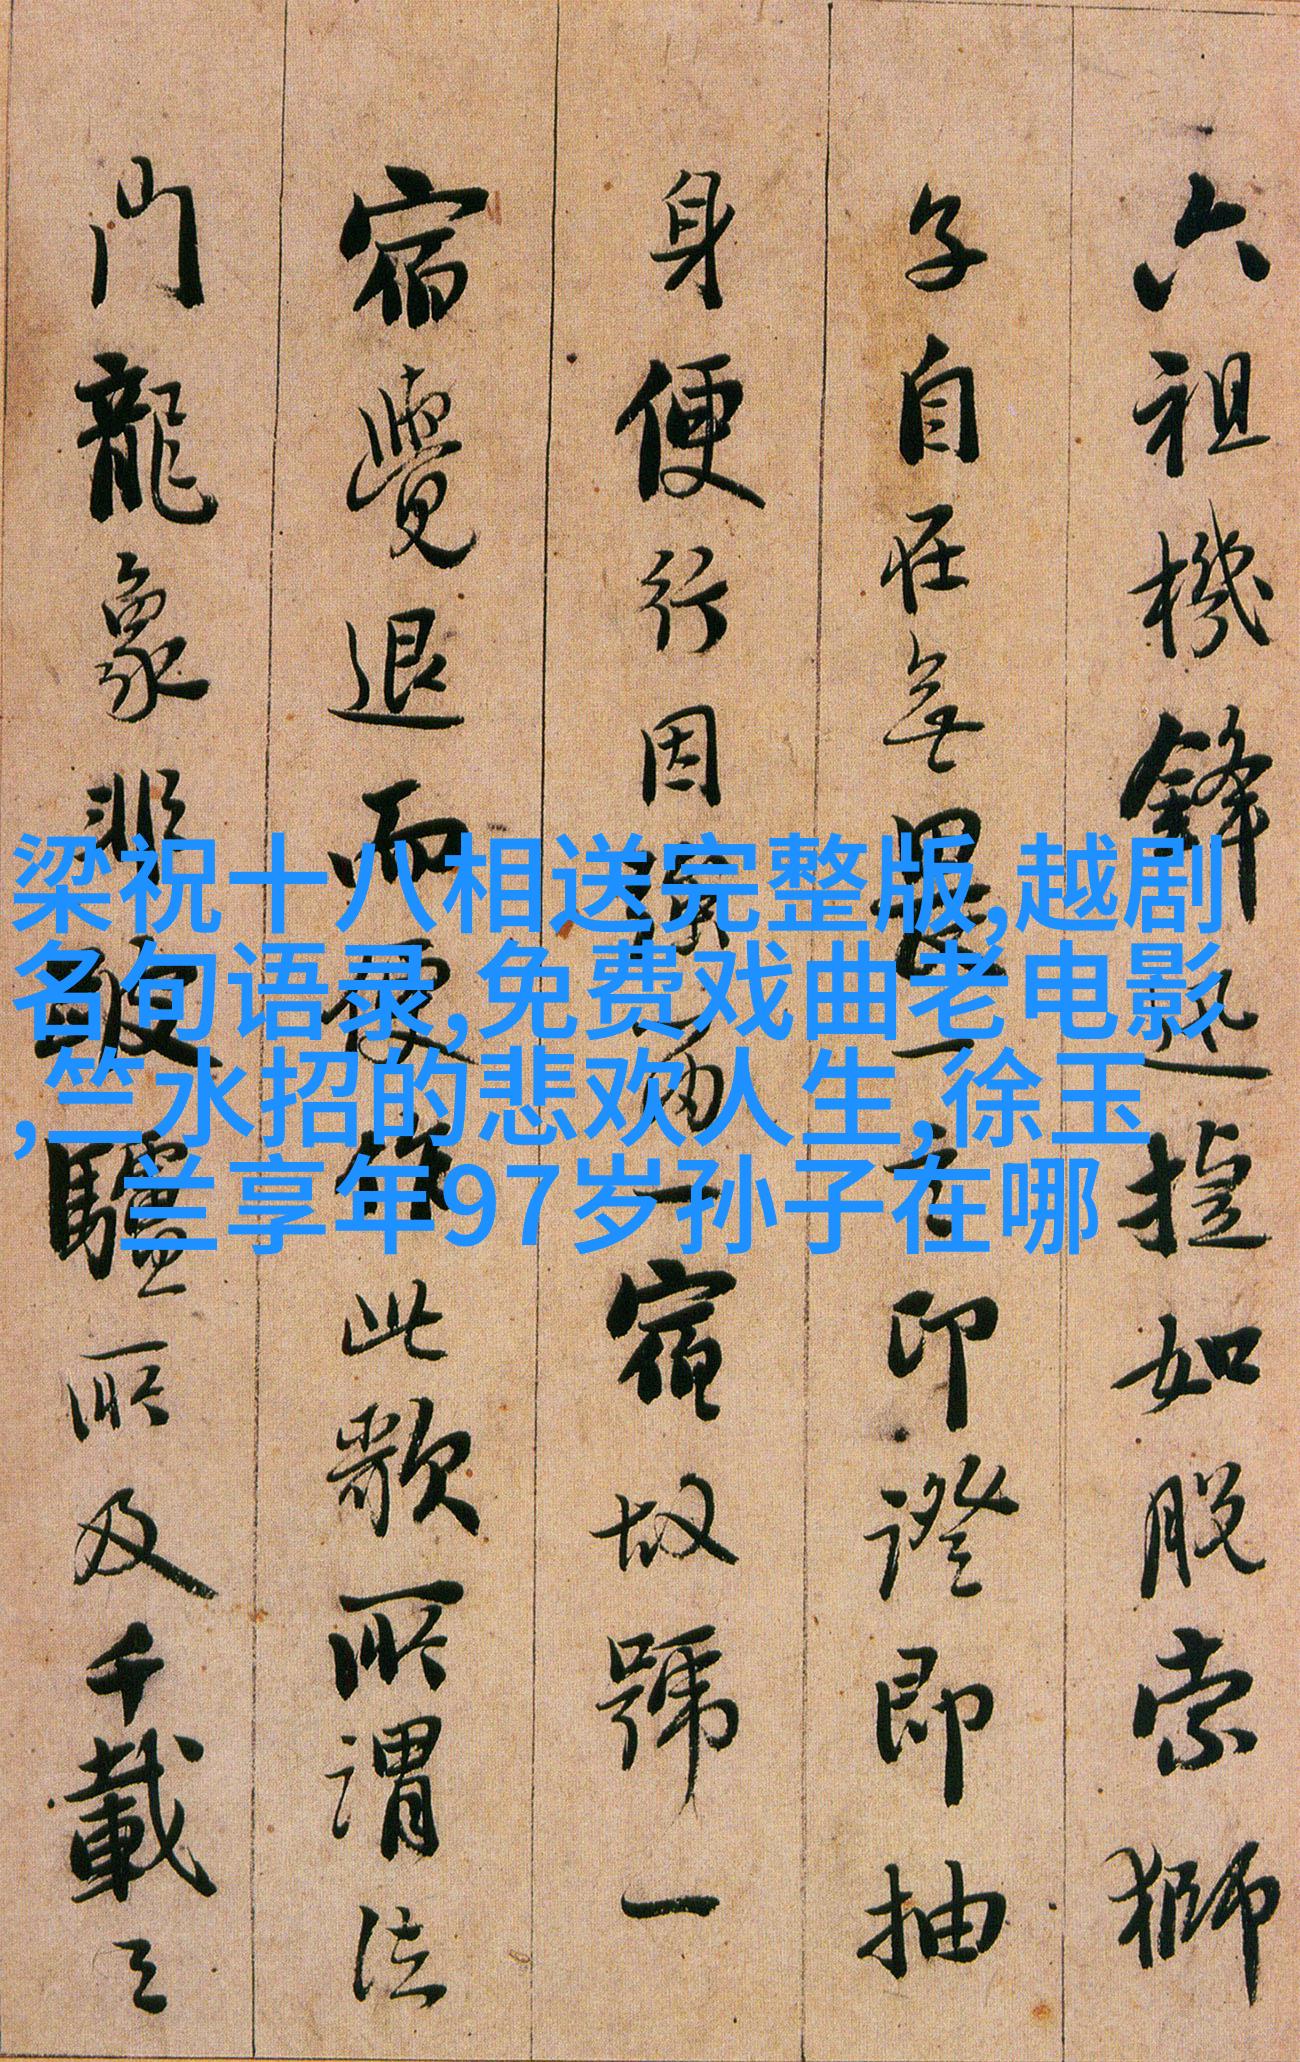 六祖機鋒迅捷如脱索獅
子自在無畏一言印證即抽
身便行因強為一宿故號一
宿覺退而作此歌所謂法
門龍象非跛驢所及千載之
梁祝十八相送完整版,越剧
名句语录,免费戏曲老电影
,竺水招的悲欢人生,徐玉
兰享年97岁孙子在哪